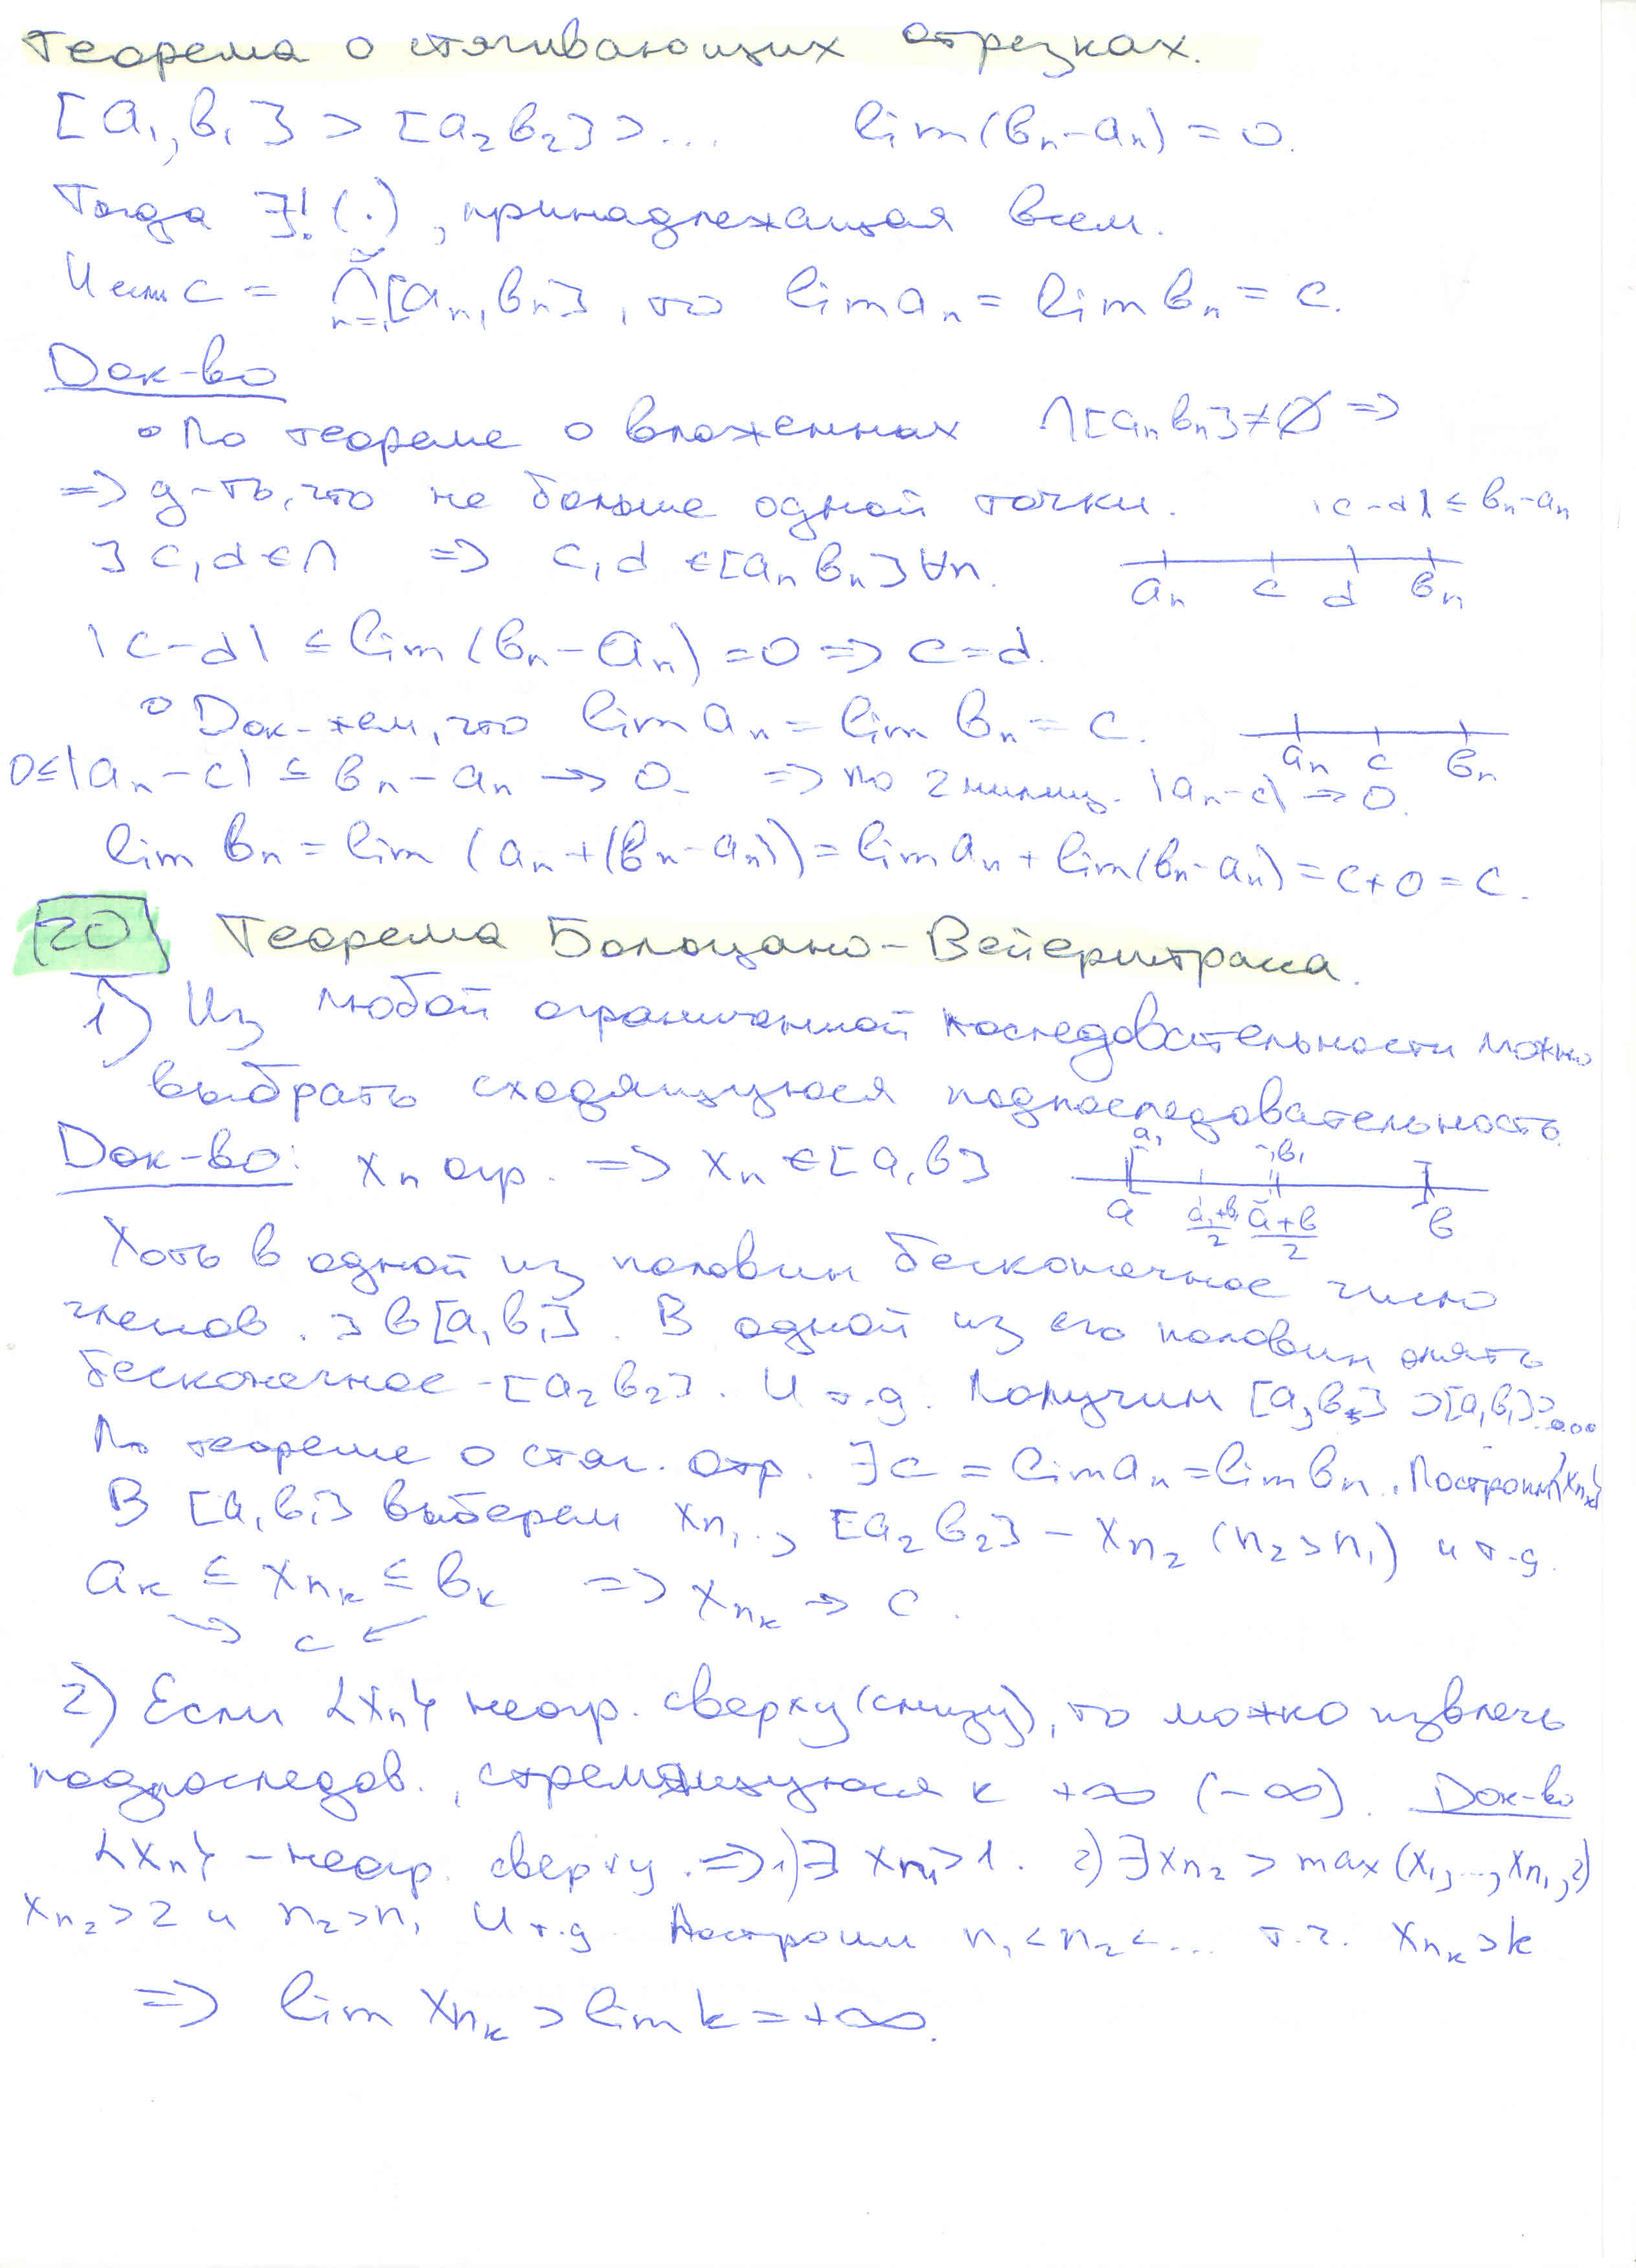 Теорема о стягивающих отрезках.
[a₁, b₁] ⊃ [a₂ b₂] ⊃ ... lim(bₙ-aₙ) = 0.
Тогда ∃! (·), принадлежащая всем.
И если c = ⋂ₙ₌₁[aₙ, bₙ], то lim aₙ = lim bₙ = c.
Док-во
∘ По теореме о вложенных ⋂[aₙ bₙ] ≠ ∅ =>
=> д-ть, что не больше одной точки. |c-d| ≤ bₙ-aₙ
∃ c, d ∈ ⋂ => c, d ∈ [aₙ bₙ] ∀n.
aₙ c d bₙ
|c-d| ≤ lim(bₙ-aₙ) = 0 => c=d.
∘ Док-жем, что lim aₙ = lim bₙ = c.
aₙ c bₙ
0≤|aₙ-c| ≤ bₙ-aₙ → 0. => по 2 милиц. |aₙ-c| → 0.
lim bₙ = lim (aₙ+(bₙ-aₙ)) = lim aₙ + lim(bₙ-aₙ) = c+0 = c.
20 Теорема Больцано-Вейерштрасса.
1) Из любой ограниченной последовательности можно
выбрать сходящуюся подпоследовательность.
Док-во: xₙ огр. => xₙ ∈ [a, b]
a₁ b₁
a (a₁+b₁)/2 (a+b)/2 b
Хоть в одной из половин бесконечное число
членов. ∃ в [a₁ b₁]. В одной из его половин опять
бесконечное - [a₂ b₂]. И т.д. Получим [a, b] ⊃ [a₁ b₁] ⊃ ...
По теореме о стяг. отр. ∃ c = lim aₙ = lim bₙ. Построим {xₙₖ}
В [a₁ b₁] выберем xₙ₁, [a₂ b₂] - xₙ₂ (n₂>n₁) и т.д.
aₖ ≤ xₙₖ ≤ bₖ => xₙₖ → c.
→ c ←
2) Если {xₙ} неогр. сверху (снизу), то можно извлечь
подпоследов., стремящуюся к +∞ (-∞). Док-во
{xₙ} - неогр. сверху. => 1) ∃ xₙ₁>1. 2) ∃ xₙ₂ > max(x₁, ..., xₙ₁, 2)
xₙ₂>2 и n₂>n₁ И т.д. Построим n₁<n₂<... т.ч. xₙₖ>k
=> lim xₙₖ > lim k = +∞.